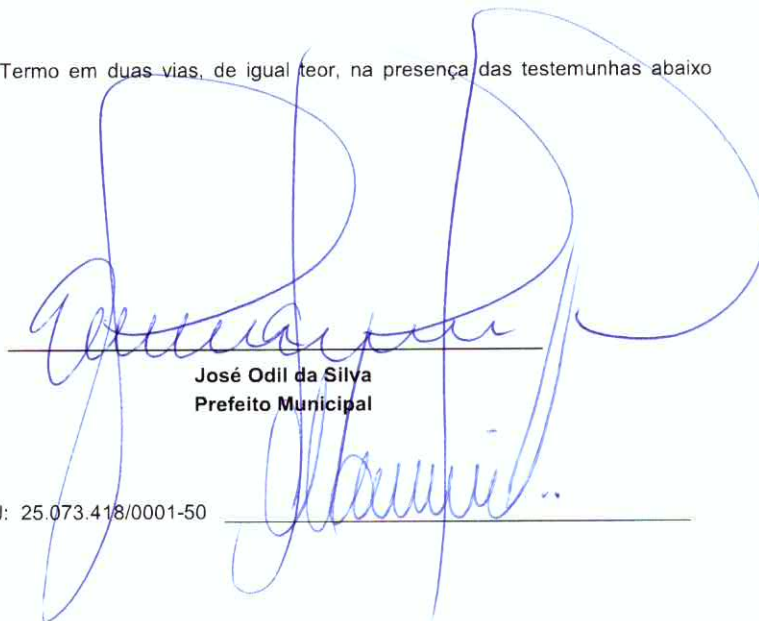 Termo em duas vias, de igual teor, na presença das testemunhas abaixo
José Odil da Silva
Prefeito Municipal
: 25.073.418/0001-50